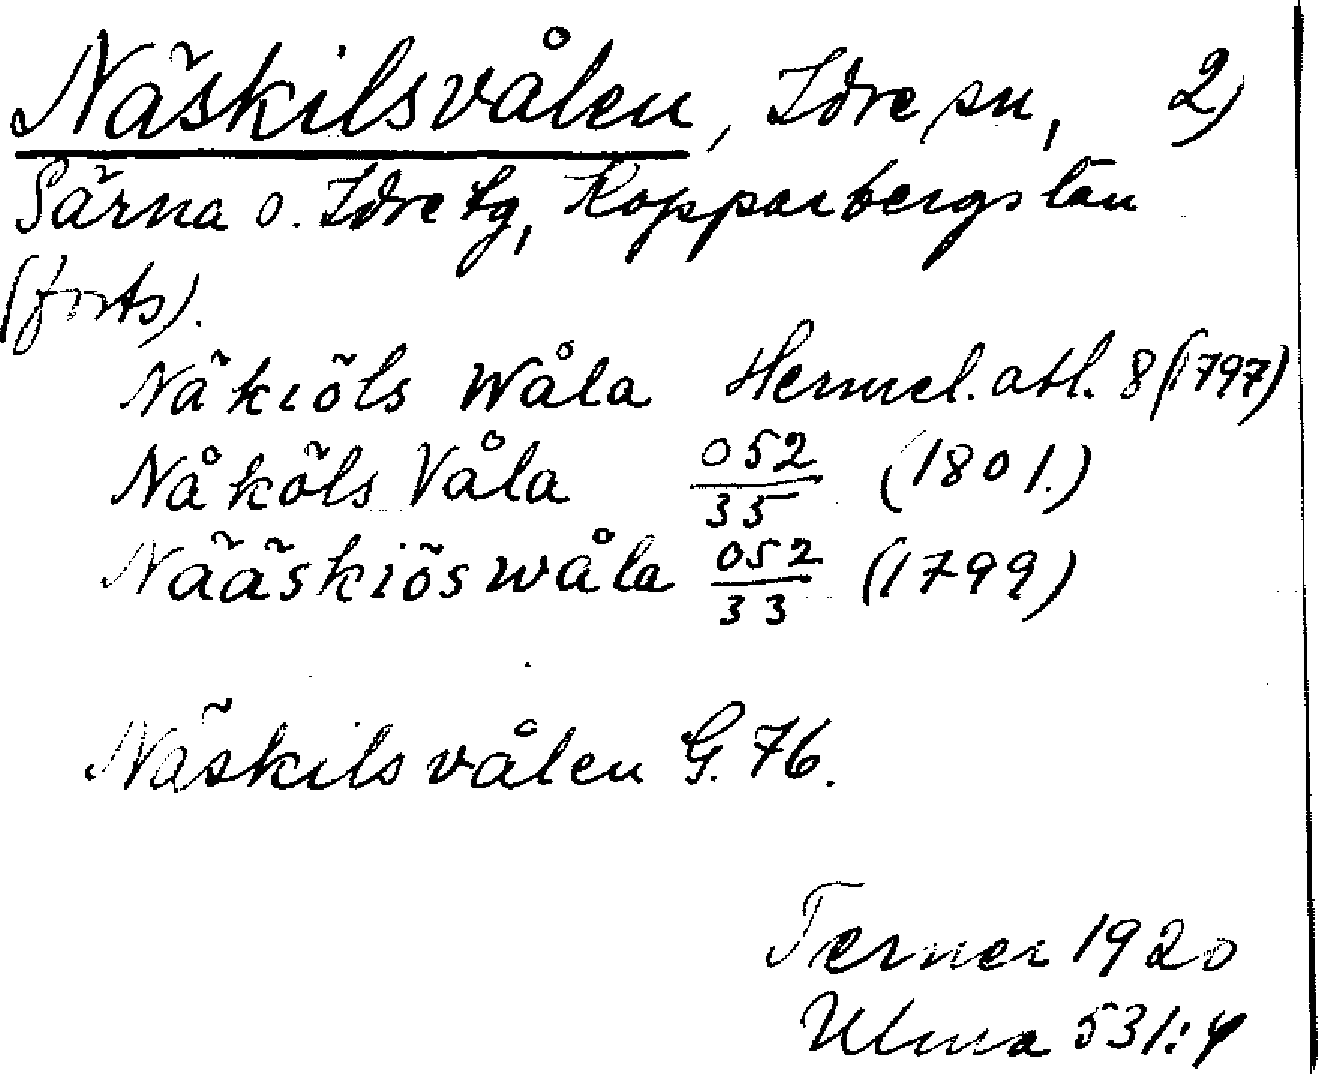 Näskilsvålen, Idre sn, 2)
Särna o. Idre tg, Kopparbergs län
(forts).
Näkiöls Wåla Hermel. atl. 8 (1797)
Nåköls Våla 052/35 (1801.)
Nääskiöswåla 052/33 (1799)
Näskilsvålen G. 76.
Terner 1920
Ulma 531:4